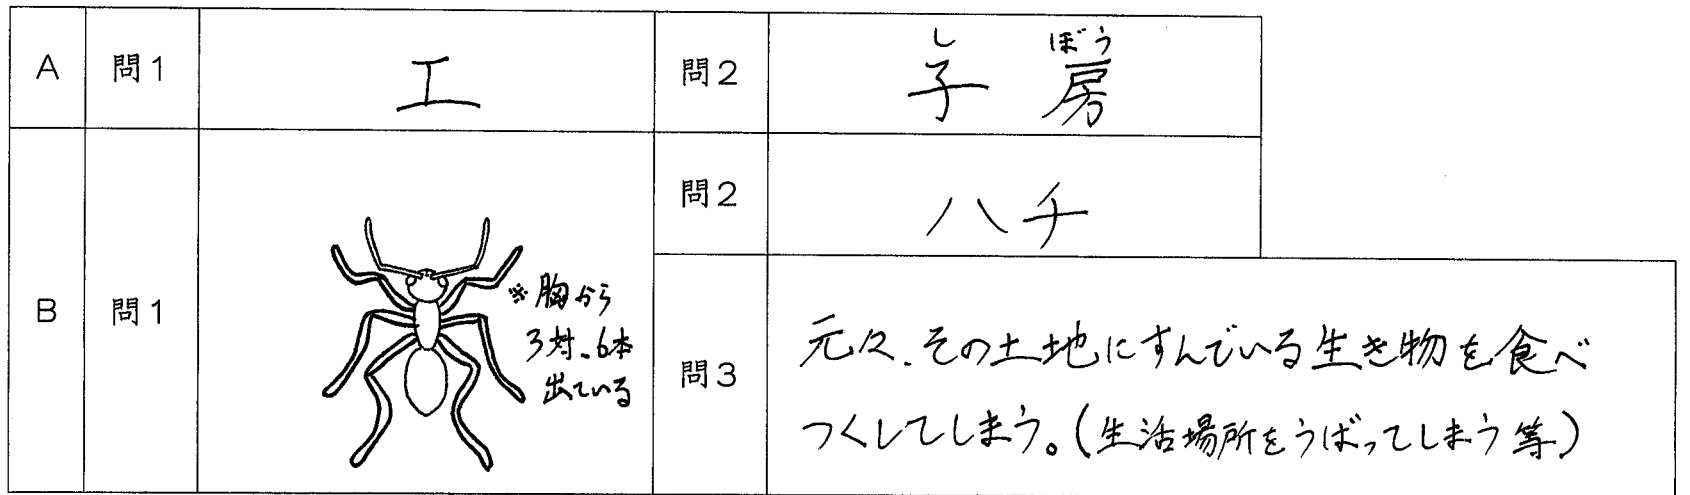 A 問1 エ 問2 子房
し ぼう
B 問1
※胸から
3対、6本
出ている
問2 ハチ
問3 元々、その土地にすんでいる生き物を食べ
つくしてしまう。(生活場所をうばってしまう等)